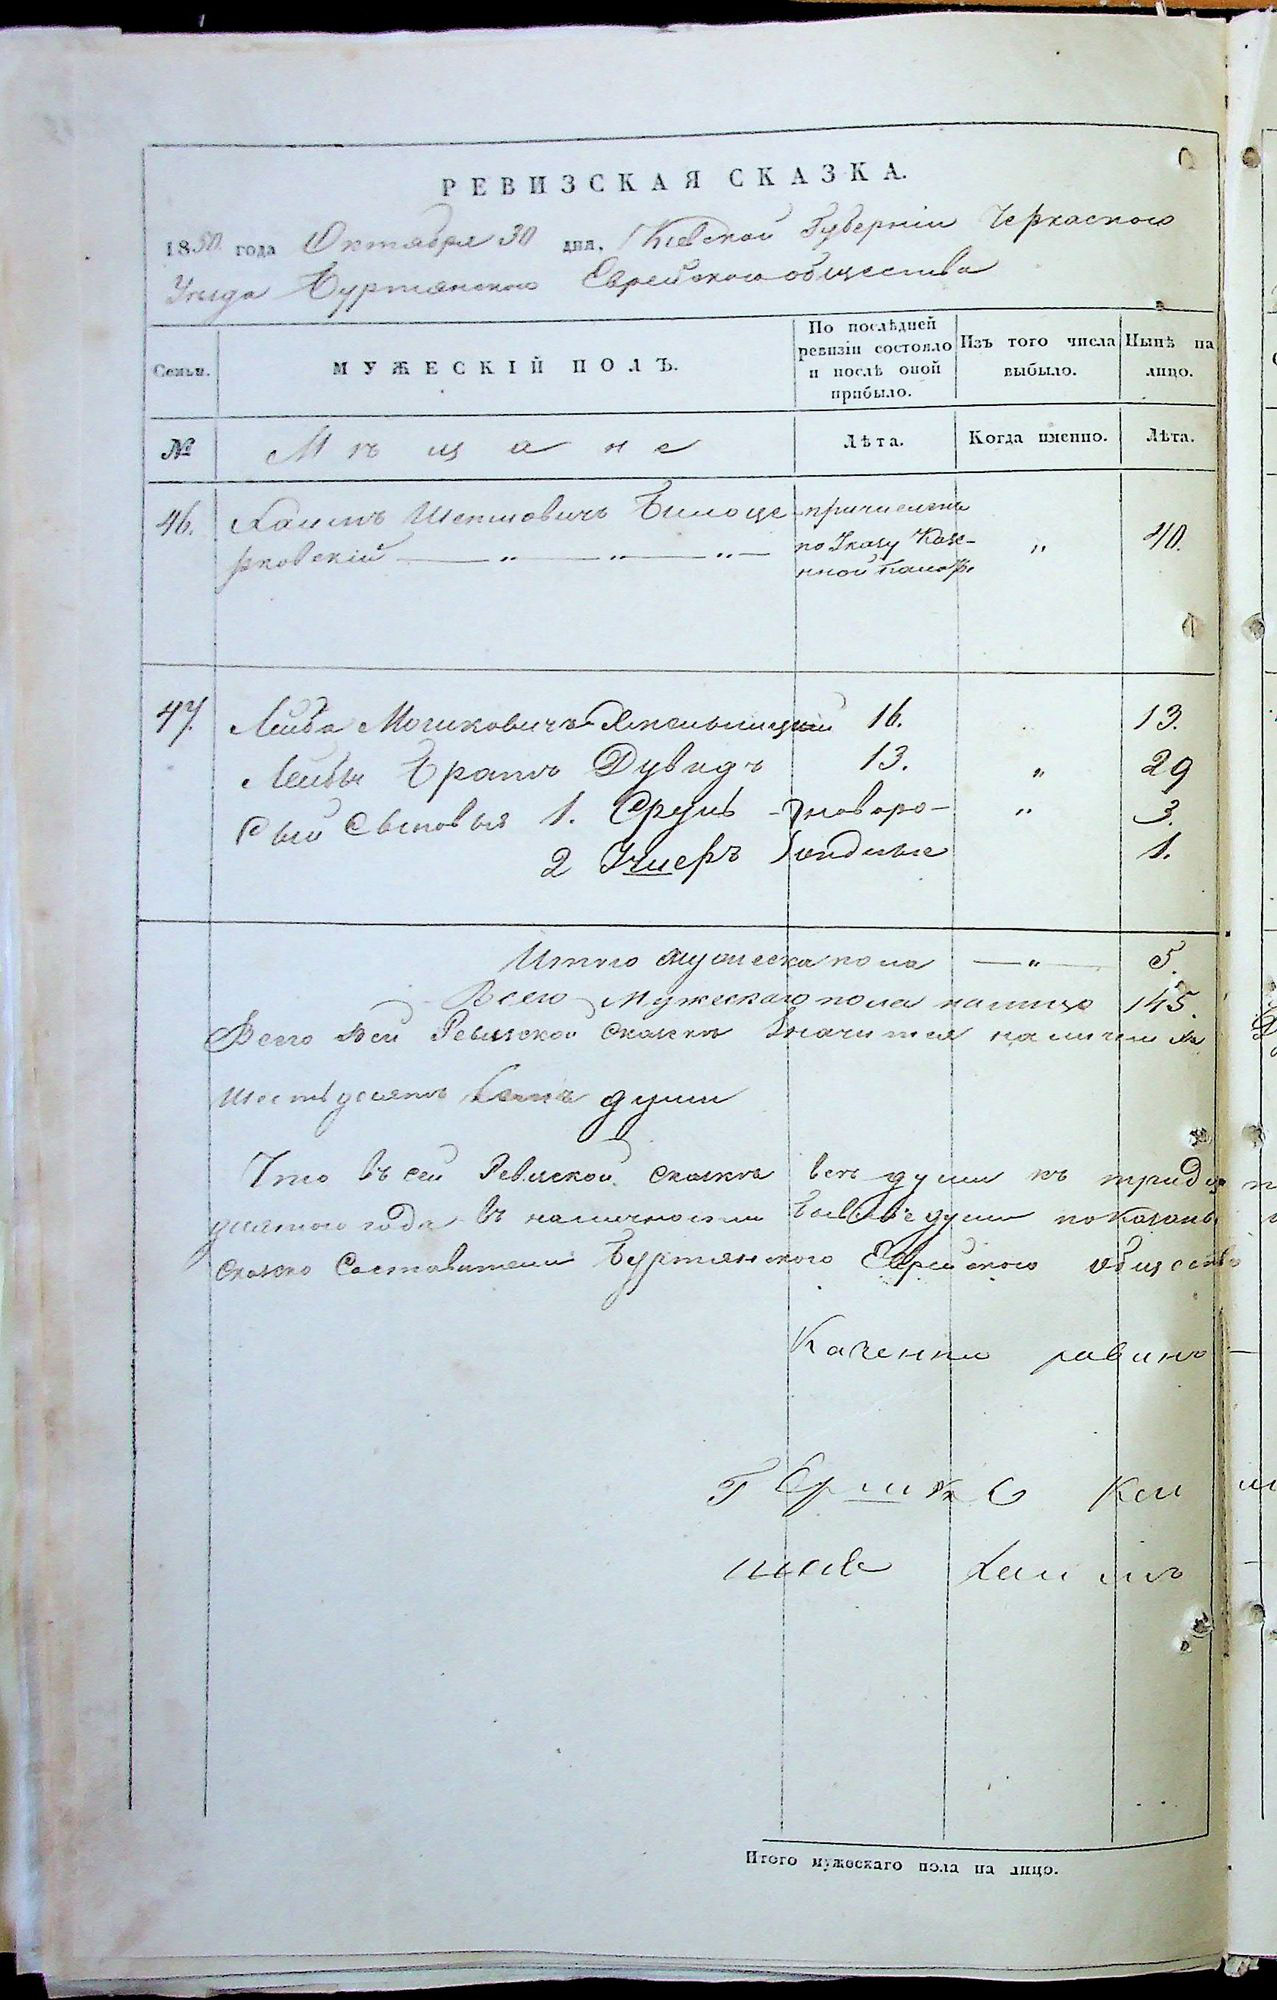 РЕВИЗСКАЯ СКАЗКА.
1850 года Октября 30 дня. Кіевской Губерніи Черкаского
Уезда Буртянского Еврейского общества
Семьи.
МУЖЕСКІЙ ПОЛЪ.
По послѣдней ревизіи состояло и послѣ оной прибыло.
Изъ того числа выбыло.
Нынѣ на лицо.
№
Мѣщане
Лѣта.
Когда именно.
Лѣта.
46. Хаимъ Шепшовичъ Билоце- причисленъ
рковскій — „ — „ — „ — по Указу Казе- „ 40.
нной палаты
47. Лейба Мошковичъ 16. 13.
Лейбы Братъ Дувидъ 13. „ 29
Сыновья 1. Сруль новоро- „ 3.
2 Ушеръ жденные 1.
Итого мужеска пола — „ — 5.
Всего мужескаго пола налицо 145.
Всего в сей Ревизской сказке значится наличныхъ
шестьдесятъ души
Что въ сей Ревизской сказкѣ всѣ души къ тридца
года въ наличности души показаны
сказко Составители Буртянского Еврейского общества
равинъ
Гершко
Хаимъ
Итого мужескаго пола на лицо.